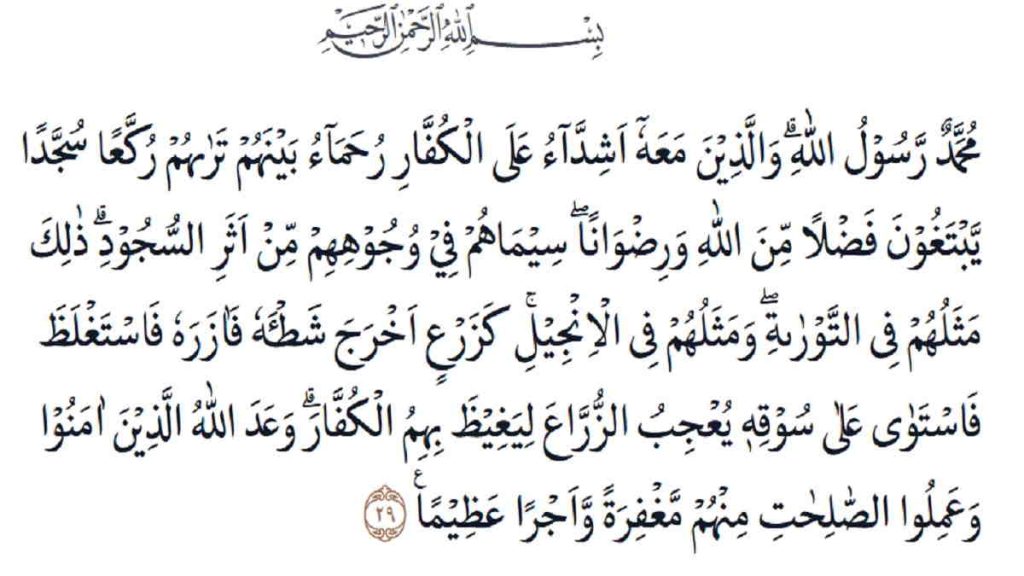 بِسْمِ اللهِ الرَّحْمٰنِ الرَّحِيْمِ
مُحَمَّدٌ رَّسُوْلُ اللّٰهِ ۗوَالَّذِيْنَ مَعَهٗٓ اَشِدَّاۤءُ عَلَى الْكُفَّارِ رُحَمَاۤءُ بَيْنَهُمْ تَرٰىهُمْ رُكَّعًا سُجَّدًا
يَّبْتَغُوْنَ فَضْلًا مِّنَ اللّٰهِ وَرِضْوَانًا ۖ سِيْمَاهُمْ فِيْ وُجُوْهِهِمْ مِّنْ اَثَرِ السُّجُوْدِ ۗذٰلِكَ
مَثَلُهُمْ فِى التَّوْرٰىةِ ۖوَمَثَلُهُمْ فِى الْاِنْجِيْلِۚ كَزَرْعٍ اَخْرَجَ شَطْـَٔهٗ فَاٰزَرَهٗ فَاسْتَغْلَظَ
فَاسْتَوٰى عَلٰى سُوْقِهٖ يُعْجِبُ الزُّرَّاعَ لِيَغِيْظَ بِهِمُ الْكُفَّارَ ۗوَعَدَ اللّٰهُ الَّذِيْنَ اٰمَنُوْا
وَعَمِلُوا الصّٰلِحٰتِ مِنْهُمْ مَّغْفِرَةً وَّاَجْرًا عَظِيْمًا ࣖ ٢٩